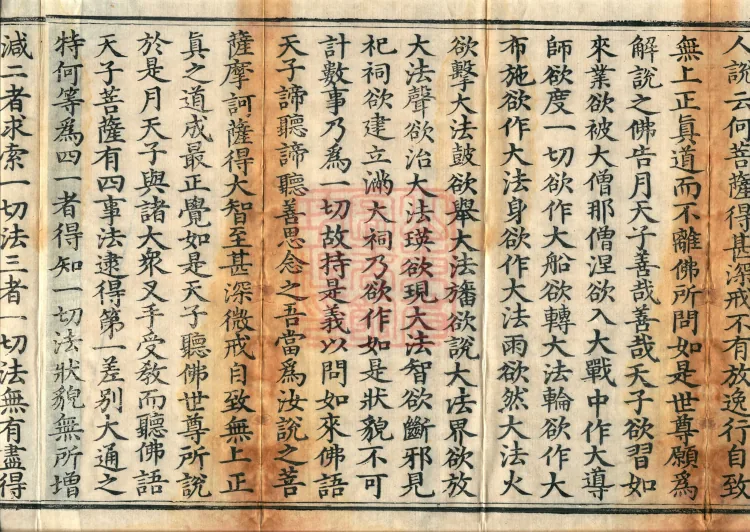 人說云何菩薩得甚深戒不有放逸行自致
無上正眞道而不離佛所問如是世尊願爲
解說之佛告月天子善哉善哉天子欲習如
來業欲被大僧那僧涅欲入大戰中作大導
師欲度一切欲作大船欲轉大法輪欲作大
布施欲作大法身欲作大法雨欲然大法火
欲擊大法鼓欲舉大法旛欲說大法界欲放
大法聲欲治大法瑛欲現大法智欲斷邪見
祀祠欲建立滿大祠乃欲作如是狀貌不可
計數事乃爲一切故持是義以問如來佛語
天子諦聽諦聽善思念之吾當爲汝說之菩
薩摩訶薩得大智至甚深微戒自致無上正
眞之道成最正覺如是天子聽佛世尊所說
於是月天子與諸大衆叉手受敎而聽佛語
天子菩薩有四事法逮得第一差別大通之
特何等爲四一者得知一切法狀貌無所增
減二者求索一切法三者一切法無有盡得